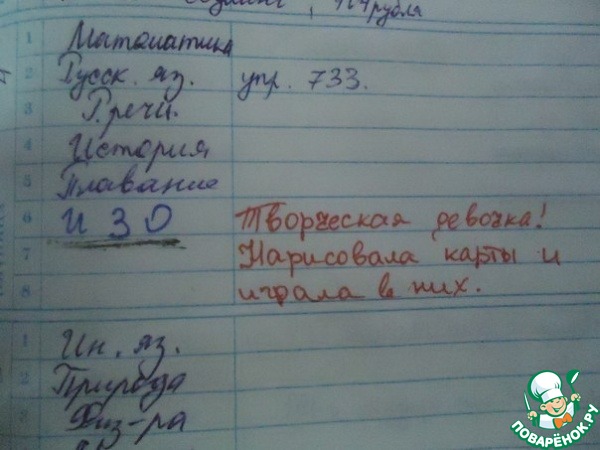 1 Математика
2 Русск. яз. упр. 733.
3 Р.речи.
4 История
5 Плавание
6 ИЗО Творческая девочка!
7 Нарисовала карты и
8 играла в них.
1 Ин. яз.
2 Природа
3 Физ-ра
ПОВАРЁНОК.РУ